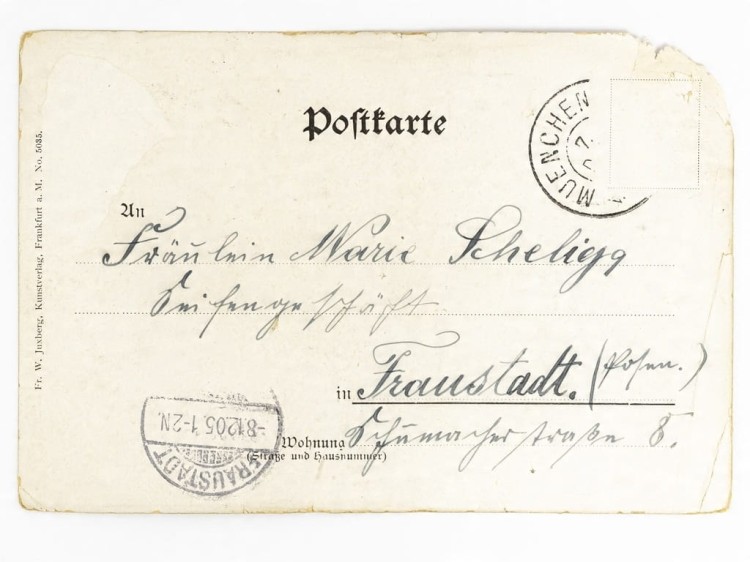 Postkarte
MUENCHEN
An
Fräulein Marie Scheligg
Seifengeschäft
in Fraustadt. (Posen.)
Wohnung Schumacherstraße 8.
(Straße und Hausnummer)
FRAUSTADT
-8.12.05.1-2N.
Fr. W. Juxberg, Kunstverlag, Frankfurt a. M. No. 5035.